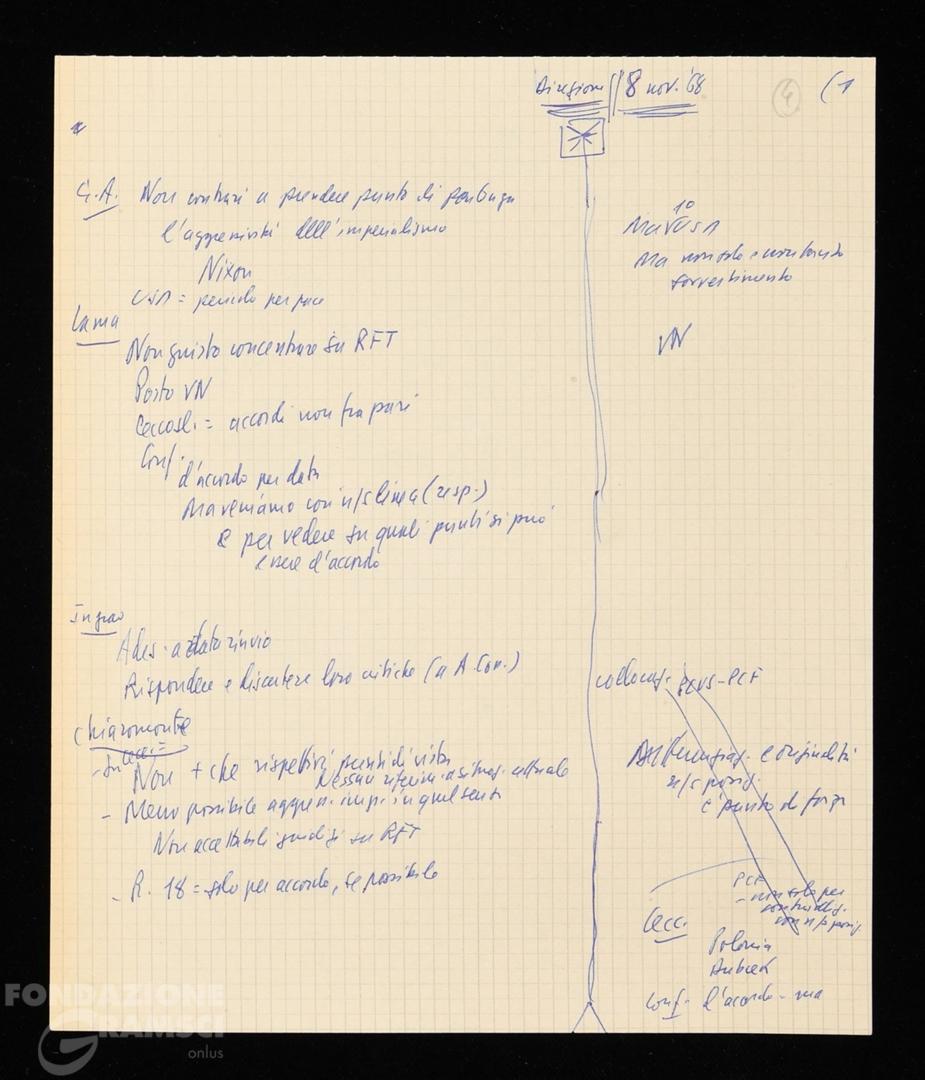 Direzione 8 nov. '68
4
(1
G.A. Non contrari a prendere punto di partenza
l'aggressività dell'imperialismo
Nixon
USA = pericolo per pace
Lama
Non giusto concentrare su RFT
Posto VN
Cecosl. = accordi non fra pari
Conf.
d'accordo per data
Ma veniamo con n/s linea (risp.)
e per vedere su quali punti si può
essere d'accordo
Ingrao
Ades. a data rinvio
Rispondere e discutere loro critiche (a A. Con.)
Chiaromonte
- Su cec. =
Non + che rispettivi punti di vista
Nessun riferim. a situaz. attuale
- Meno possibile aggress. imp. in quel senso
Non accettabili giudizi su RFT
- R. 18 = solo per accordo, se possibile
1º
Ma USA
Ma non solo
VN
collocaz. PCUS-PCF
e originalità
n/s posiz.
e punto di forza
PCF
- non solo per
con n/s posiz.
Cecc.
Polonia
Dubcek
Conf. d'accordo - ma
FONDAZIONE
GRAMSCI
onlus